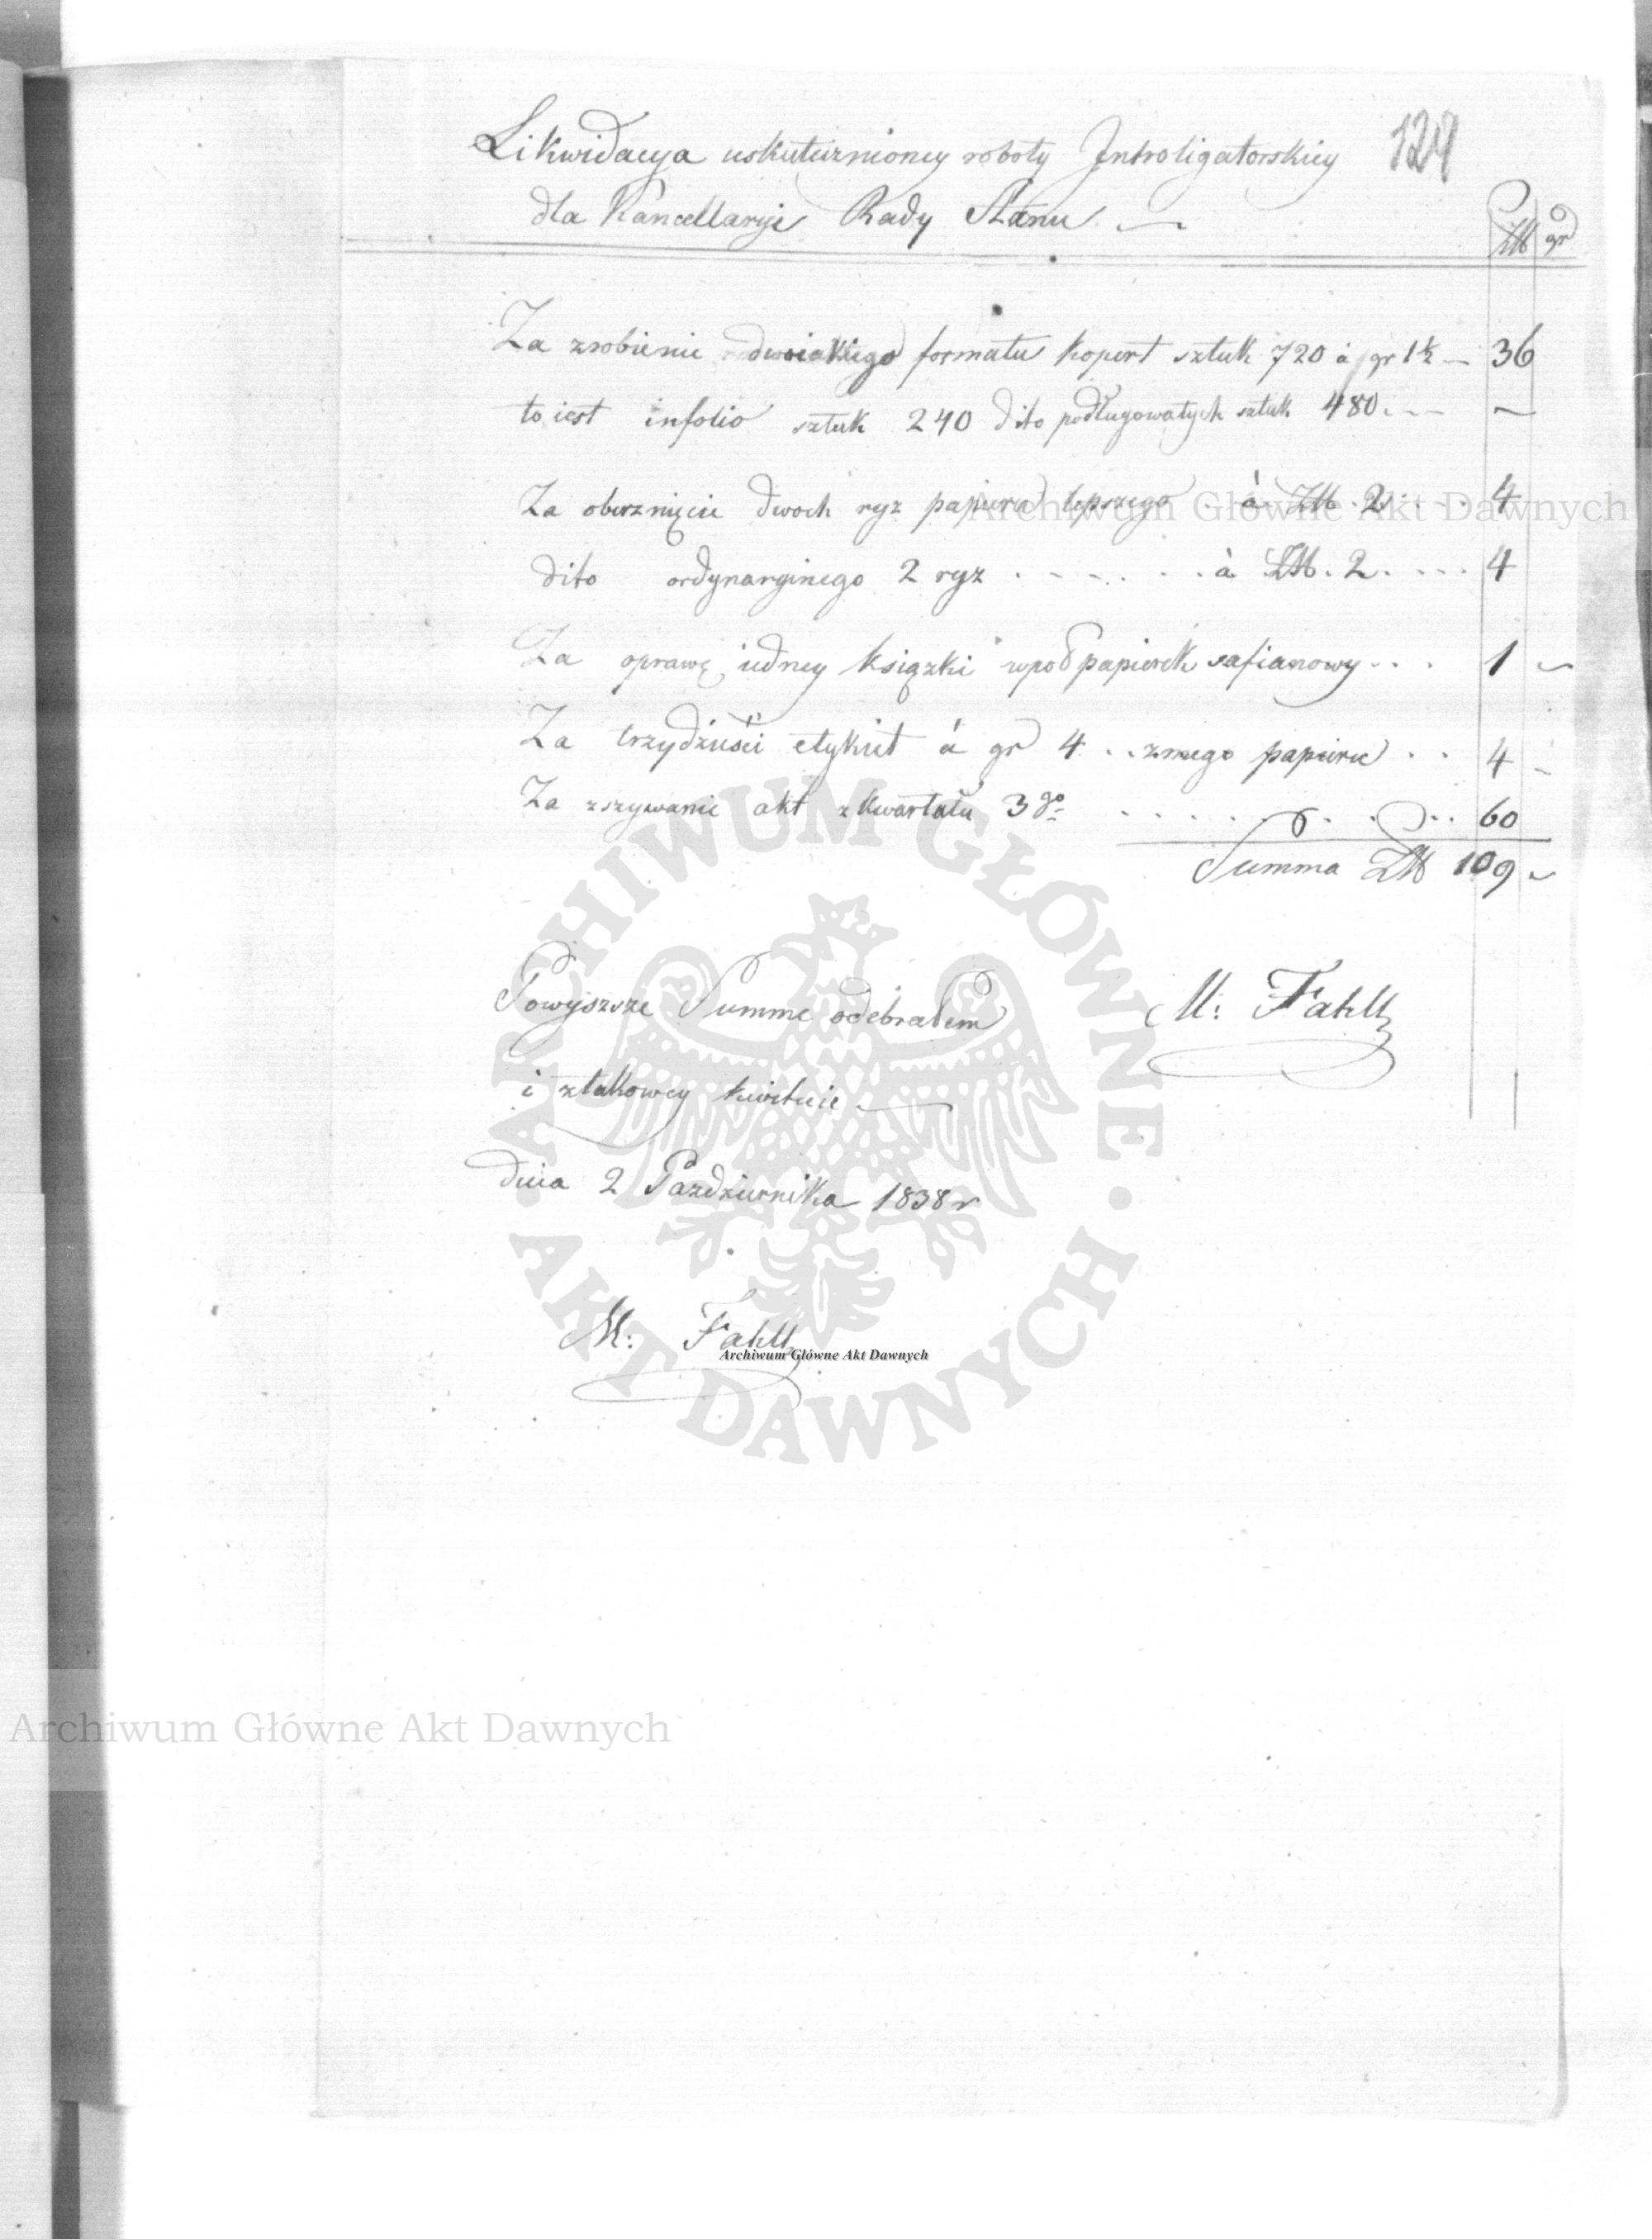 129
Likwidacya uskutecznioney roboty Introligatorskiey
dla Kancellaryi Rady Stanu
Złł gr
Za zrobienie dwoiakiego formatu kopert sztuk 720 à gr 1½ — 36
to iest infolio sztuk 240 dito podługowatych sztuk 480 . — —
Za oberznięcie dwoch ryz papieru lepszego . . à Złł. 2 . . . . 4
dito ordynaryinego 2 ryz . . . . . . . à Złł. 2 . . . . 4
Za oprawę iedney ksiązki wpół papierek safianowy . . . 1 —
Za trzydzieści etykiet à gr 4 . . zmego papieru . . 4 —
Za zszywanie akt z kwartału 3go . . . . . . . . . 60
Summa Złł 109 —
Powyszsze Summe odebrałem
M: Fahll
i ztakowey kwituie —
dnia 2 Pazdziernika 1838 r
M: Fahll
Archiwum Główne Akt Dawnych
Archiwum Główne Akt Dawnych
Archiwum Główne Akt Dawnych
ARCHIWUM GŁÓWNE · AKT DAWNYCH ·